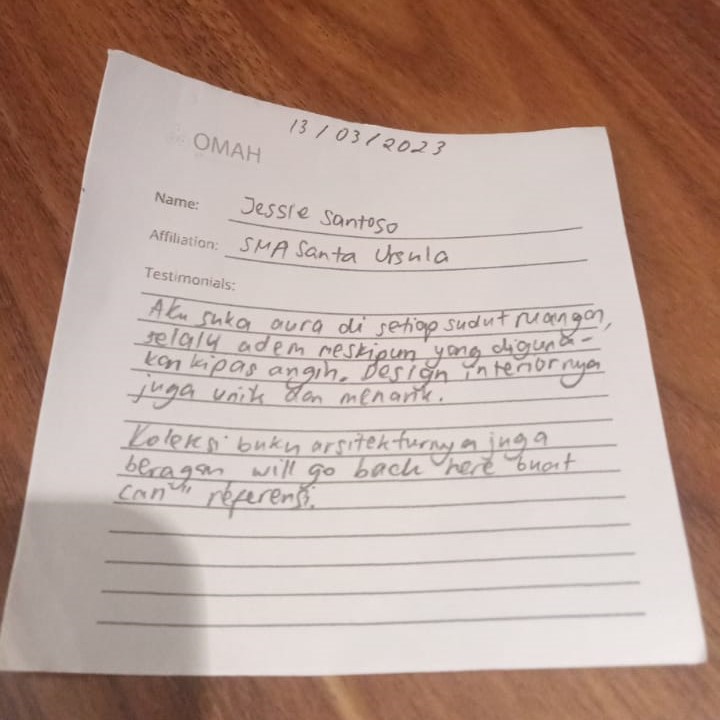 13/03/2023
OMAH
Name: Jessie Santoso
Affiliation: SMA Santa Ursula
Testimonials:
Aku suka aura di setiap sudut ruangan,
selalu adem meskipun yang diguna-
kan kipas angin. Design interiornya
juga unik dan menarik.
Koleksi buku arsitekturnya juga
beragam will go back here buat
cari" referensi.